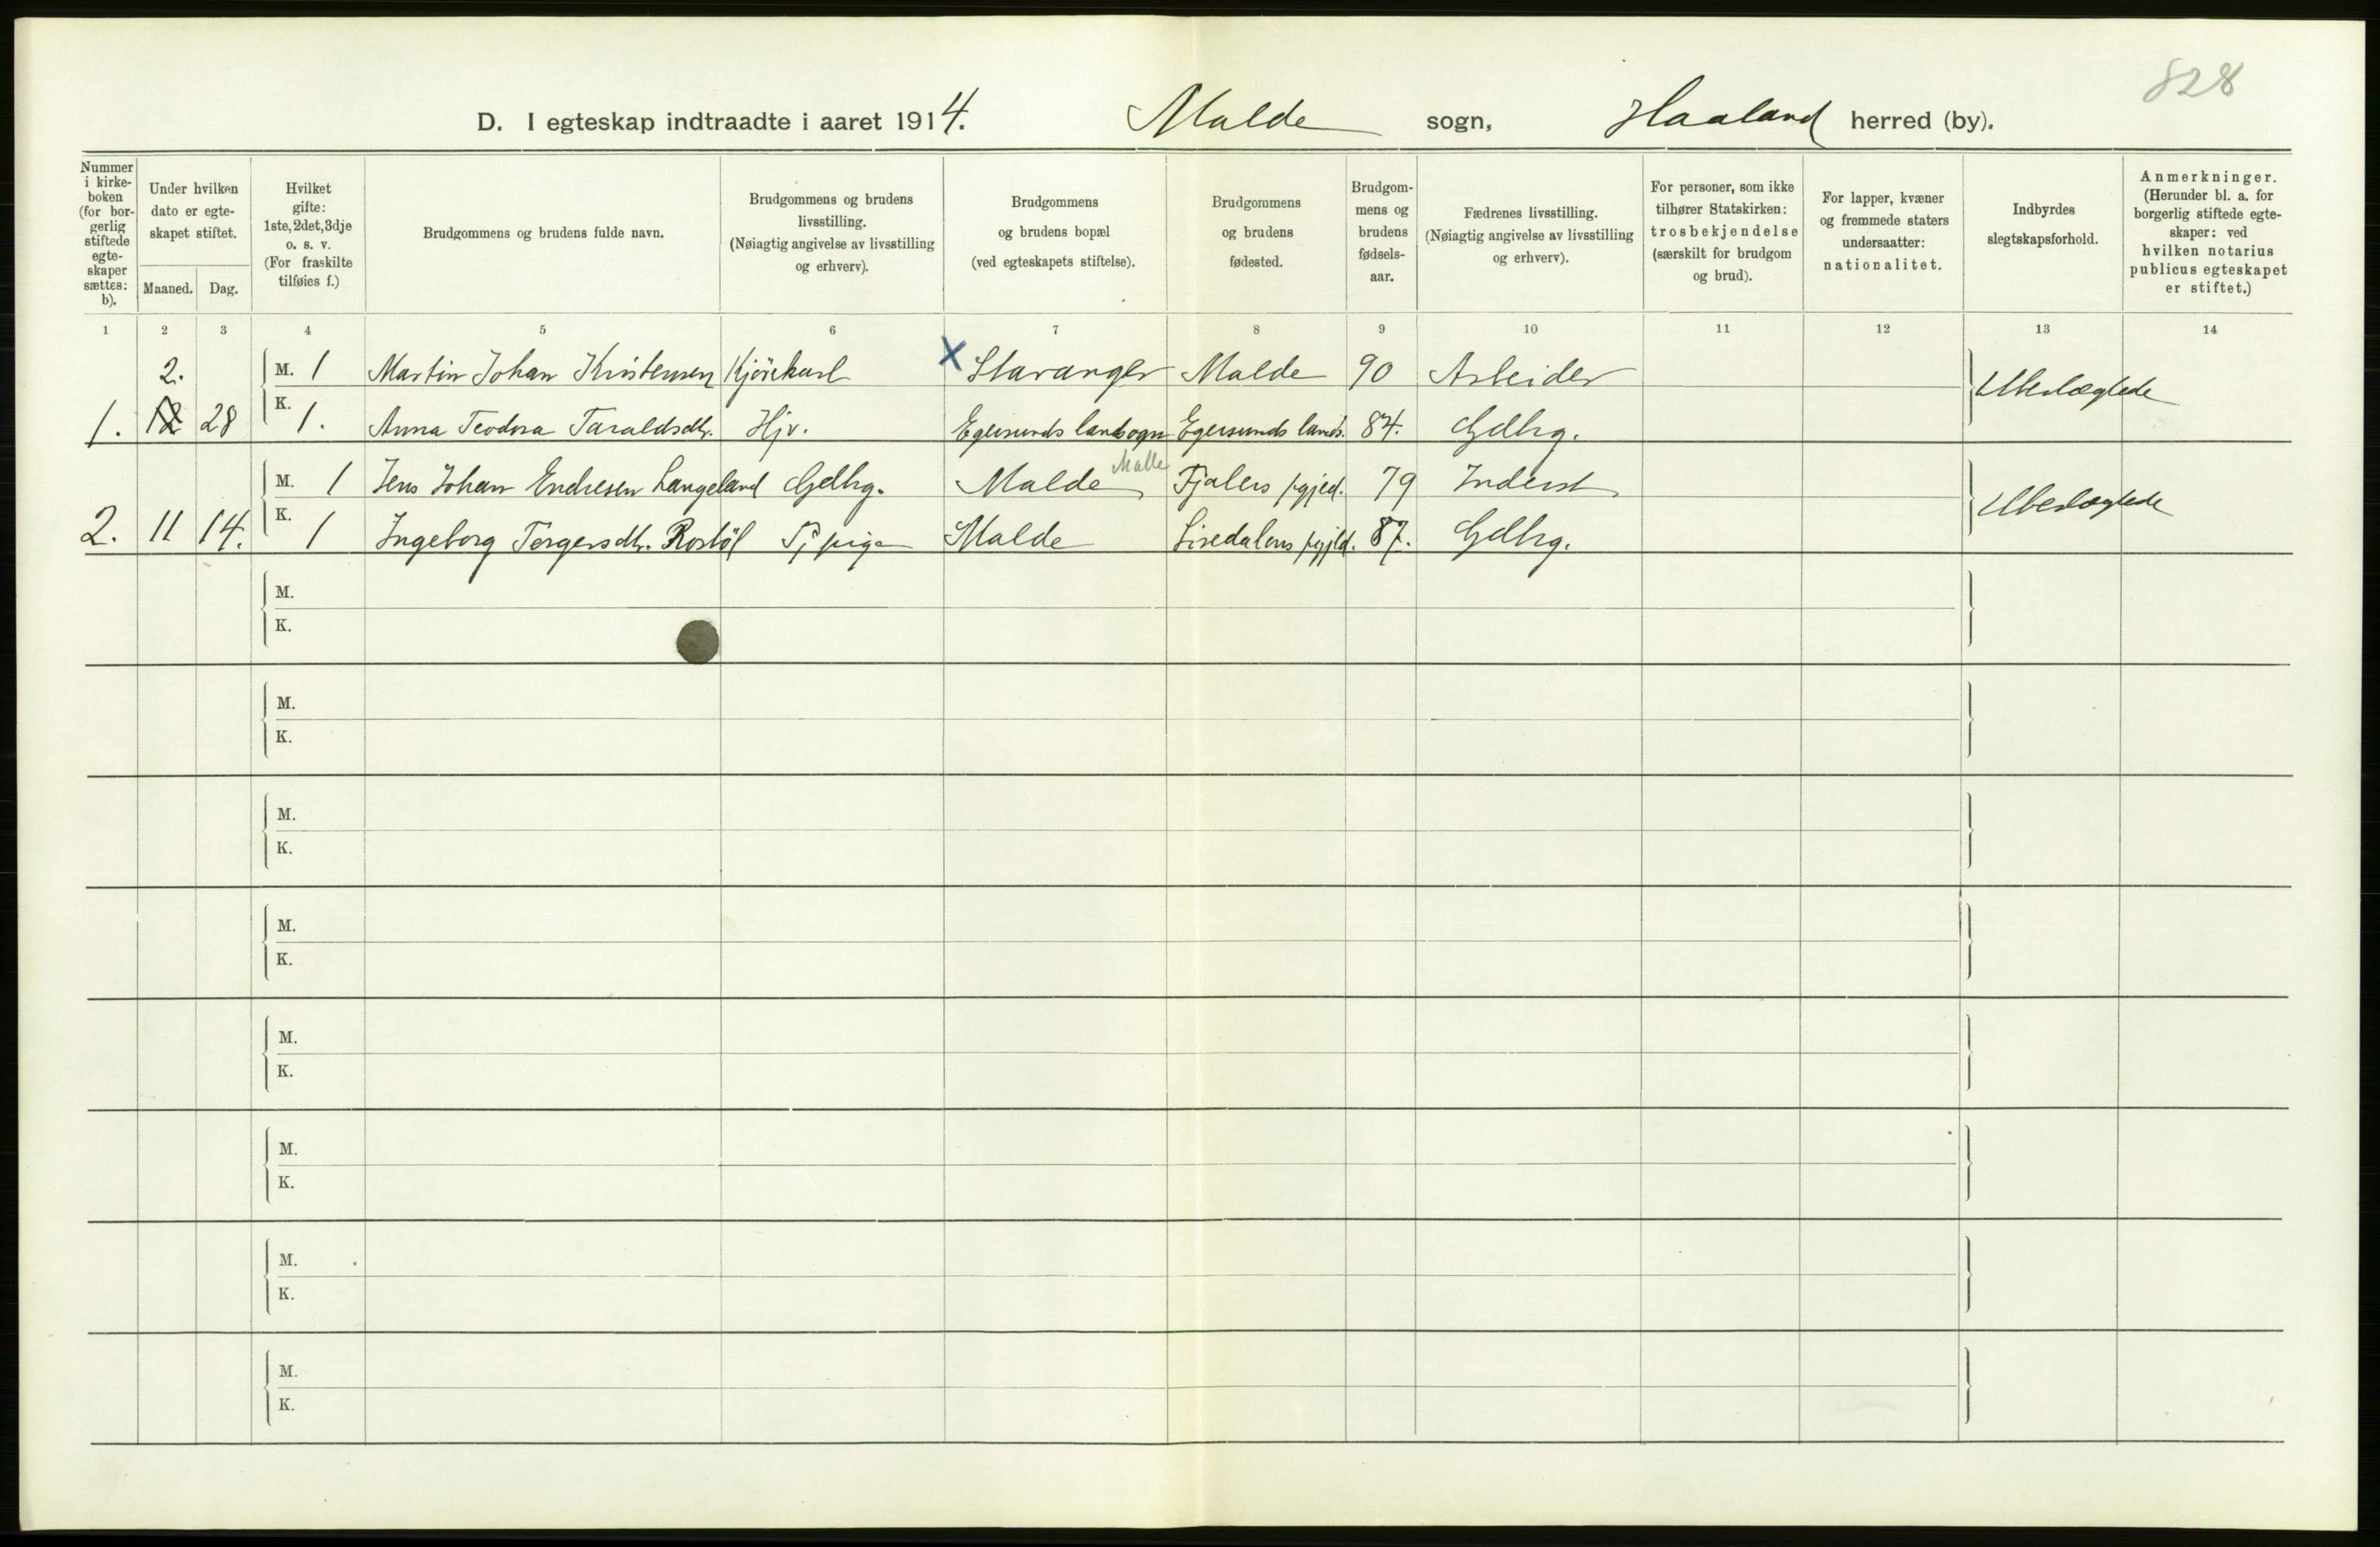 828
D. I egteskap indtraadte i aaret 1914. Malde sogn, Haaland herred (by).
Nummer i kirke- boken (for bor- gerlig stiftede egte- skaper sættes: b).
Under hvilken dato er egte- skapet stiftet.
Maaned. Dag.
Hvilket gifte: 1ste, 2det, 3dje o. s. v. (For fraskilte tilføies f.)
Brudgommens og brudens fulde navn.
Brudgommens og brudens livsstilling. (Nøiagtig angivelse av livsstilling og erhverv).
Brudgommens og brudens bopæl (ved egteskapets stiftelse).
Brudgommens og brudens fødested.
Brudgom- mens og brudens fødsels- aar.
Fædrenes livsstilling. (Nøiagtig angivelse av livsstilling og erhverv).
For personer, som ikke tilhører Statskirken: trosbekjendelse (særskilt for brudgom og brud).
For lapper, kvæner og fremmede staters undersaatter: nationalitet.
Indbyrdes slegtskapsforhold.
Anmerkninger. (Herunder bl. a. for borgerlig stiftede egte- skaper: ved hvilken notarius publicus egteskapet er stiftet.)
1 2 3 4 5 6 7 8 9 10 11 12 13 14
2. M. 1 Martin Johan Kristensen Kjörekarl X Stavanger Malde 90 Arbeider Ubeslægtede
1. 12 28 K. 1. Anna Teodora Taraldsdtr. Hjv. Egersunds landsogn Egersunds lands. 84. Gdbrg.
Malle
M. 1 Jens Johan Endresen Langeland Gdbrg. Malde Fjalers pgjed. 79 Inderst Ubeslægtede
2. 11 14. K. 1 Ingeborg Tergersdtr. Rostöl Tj. pige Malde Siredalens pgjld. 87. Gdbrg.
M.
K.
M.
K.
M.
K.
M.
K.
M.
K.
M.
K.
M.
K.
M.
K.